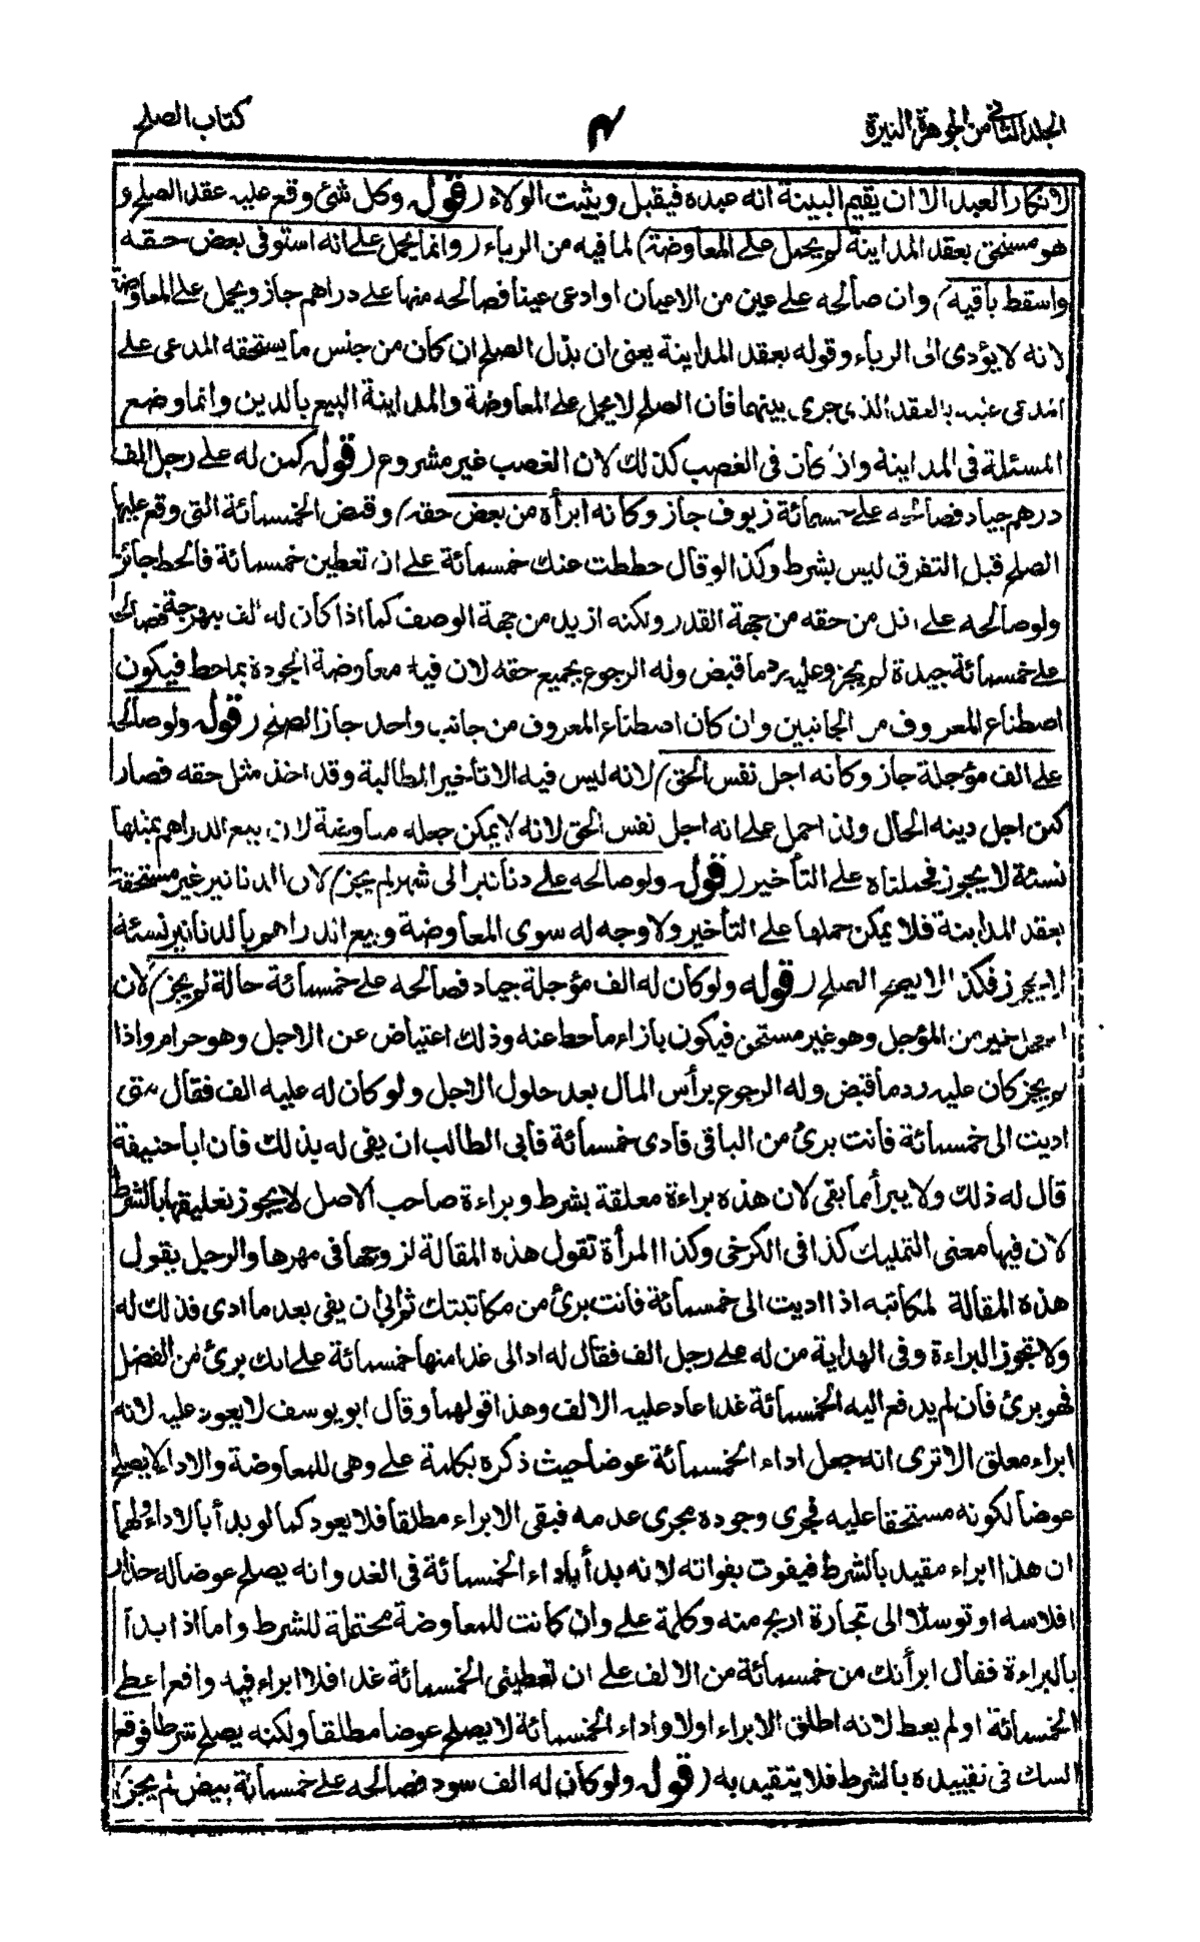 الجلد الثاني من الجوهرة النيرة
٤
كتاب الصلح
لانكار العبد الا ان يقيم البينة انه عبده فيقبل ويثبت الولاء (قوله وكل شئ وقع عليه عقد الصلح و
هو مستحق بعقد المداينة لم يحمل على المعاوضة) لما فيه من الرباء (وانما يحمل على انه استوفى بعض حقه
واسقط باقيه) وان صالحه على عين من الاعيان او ادعى عينا فصالحه منها على دراهم جاز ويحمل على المعاوضة
لانه لا يؤدى الى الرباء وقوله بعقد المداينة يعنى ان بذل الصلح ان كان من جنس ما يستحقه المدعى على
المدعى عليه بالعقد الذى جرى بينهما فان الصلح لا يحمل على المعاوضة والمداينة البيع بالدين وانما وضع
المسئلة فى المداينة وان كان فى الغصب كذلك لان الغصب غير مشروع (قوله كمن له على رجل الف
درهم جياد فصالحه على خمسمائة زيوف جاز وكانه ابرأه من بعض حقه) وقبض الخمسمائة التى وقع عليها
الصلح قبل التفرق ليس بشرط وكذا لو قال حططت عنك خمسمائة على ان تعطين خمسمائة فالحط جائز
ولو صالحه على اقل من حقه من جهة القدر ولكنه ازيد من جهة الوصف كما اذا كان له الف بهرجة فصالحه
على خمسمائة جيدة لم يجز وعليه رد ما قبض وله الرجوع بجميع حقه لان فيه معاوضة الجودة بما حط فيكون
اصطناع المعروف من الجانبين وان كان اصطناع المعروف من جانب واحد جاز الصلح (قوله ولو صالحه
على الف مؤجلة جاز وكانه اجل نفس الحق) لانه ليس فيه الا تأخير المطالبة وقد اخذ مثل حقه فصار
كمن اجل دينه الحال ولذا حمل على انه اجل نفس الحق لانه لا يمكن جعله معاوضة لان بيع الدراهم بمثلها
نسئة لا يجوز فحملناه على التأخير (قوله ولو صالحه على دنانير الى شهر لم يجز) لان الدنانير غير مستحقة
بعقد المداينة فلا يمكن حملها على التأخير ولا وجه له سوى المعاوضة وبيع الدراهم بالدنانير نسئة
لا يجوز فكذا لا يصح الصلح (قوله ولو كان له الف مؤجلة جياد فصالحه على خمسمائة حالة لم يجز) لان
المعجل خير من المؤجل وهو غير مستحق فيكون بازاء ما حط عنه وذلك اعتياض عن الاجل وهو حرام واذا
لم يجز كان عليه رد ما قبض وله الرجوع برأس المال بعد حلول الاجل ولو كان له عليه الف فقال متى
اديت الى خمسمائة فانت برئ من الباقى فادى خمسمائة فابى الطالب ان يفى له بذلك فان ابا حنيفة
قال له ذلك ولا يبرأ مما بقى لان هذه براءة معلقة بشرط وبراءة صاحب الاصل لا يجوز تعليقها بالشرط
لان فيها معنى التمليك كذا فى الكرخى وكذا المرأة تقول هذه المقالة لزوجها فى مهرها والرجل يقول
هذه المقالة لمكاتبه اذا اديت الى خمسمائة فانت برئ من مكاتبتك ثم ابى ان يفى بعد ما ادى فذلك له
ولا تجوز البراءة وفى الهداية من له على رجل الف فقال له اد الى غدا منها خمسمائة على انك برئ من الفضل
فهو برئ فان لم يدفع اليه الخمسمائة غدا عاد عليه الالف وهذا قولهما وقال ابو يوسف لا يعود عليه لانه
ابراء معلق الا ترى انه جعل اداء الخمسمائة عوضا حيث ذكره بكلمة على وهى للمعاوضة والاداء لا يصلح
عوضا لكونه مستحقا عليه فجرى وجوده مجرى عدمه فبقى الابراء مطلقا فلا يعود كما لو بدأ بالاداء ولهما
ان هذا ابراء مقيد بالشرط فيفوت بفواته لانه بدأ باداء الخمسمائة فى الغد وانه يصلح عوضا له حذار
افلاسه او توسلا الى تجارة اربح منه وكلمة على وان كانت للمعاوضة محتملة للشرط واما اذا بدأ
بالبراءة فقال ابرأتك من خمسمائة من الالف على ان تعطينى الخمسمائة غدا فلا ابراء فيه واقعرا عطى
الخمسمائة او لم يعط لانه اطلق الابراء اولا واداء الخمسمائة لا يصلح عوضا مطلقا ولكنه يصلح شرطا فوقع
الشك فى تقييده بالشرط فلا يتقيد به (قوله ولو كان له الف سود فصالحه على خمسمائة بيض لم يجز)